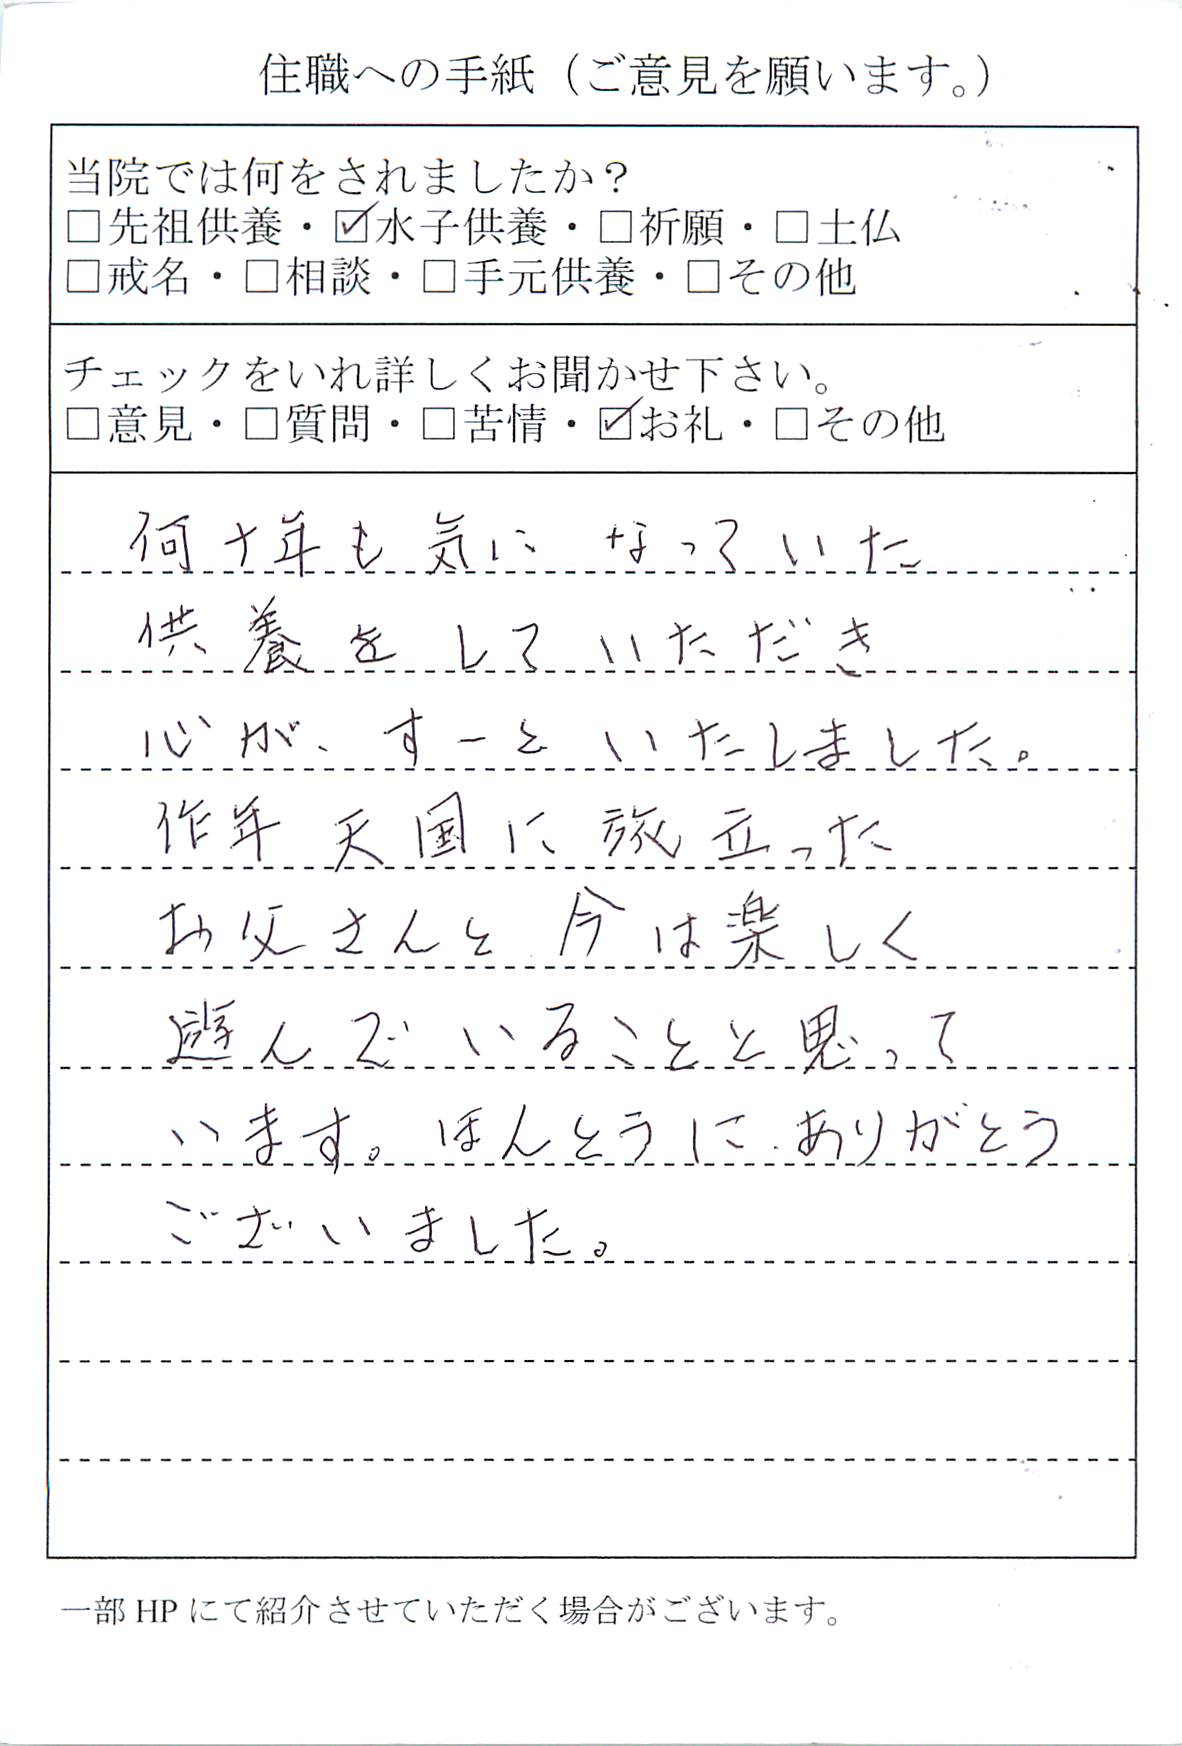 住職への手紙（ご意見を願います。）
当院では何をされましたか？
□先祖供養・☑水子供養・□祈願・□土仏
□戒名・□相談・□手元供養・□その他
チェックをいれ詳しくお聞かせ下さい。
□意見・□質問・□苦情・☑お礼・□その他
何十年も気になっていた
供養をしていただき
心が、すーといたしました。
作年天国に旅立った
お父さんと今は楽しく
遊んでいることと思って
います。ほんとうにありがとう
ございました。
一部HPにて紹介させていただく場合がございます。